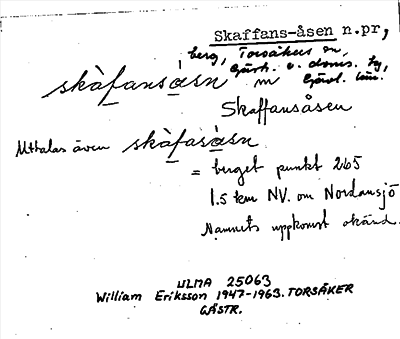 Skaffans-åsen n.pr,
berg, Torsåkers sn,
Gästr. ö. doms. hg,
skàfansåsn m Gävl. län.
Skaffansåsen
Uttalas även skàfasàsn
= berget punkt 265
1.5 km NV. om Nordansjö
Namnets uppkomst okänd.
ULMA 25063
William Eriksson 1947-1963. TORSÅKER
GÄSTR.